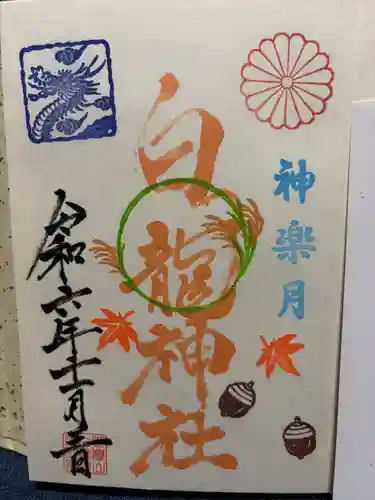 神楽月
白龍神社
令和六年十一月三日